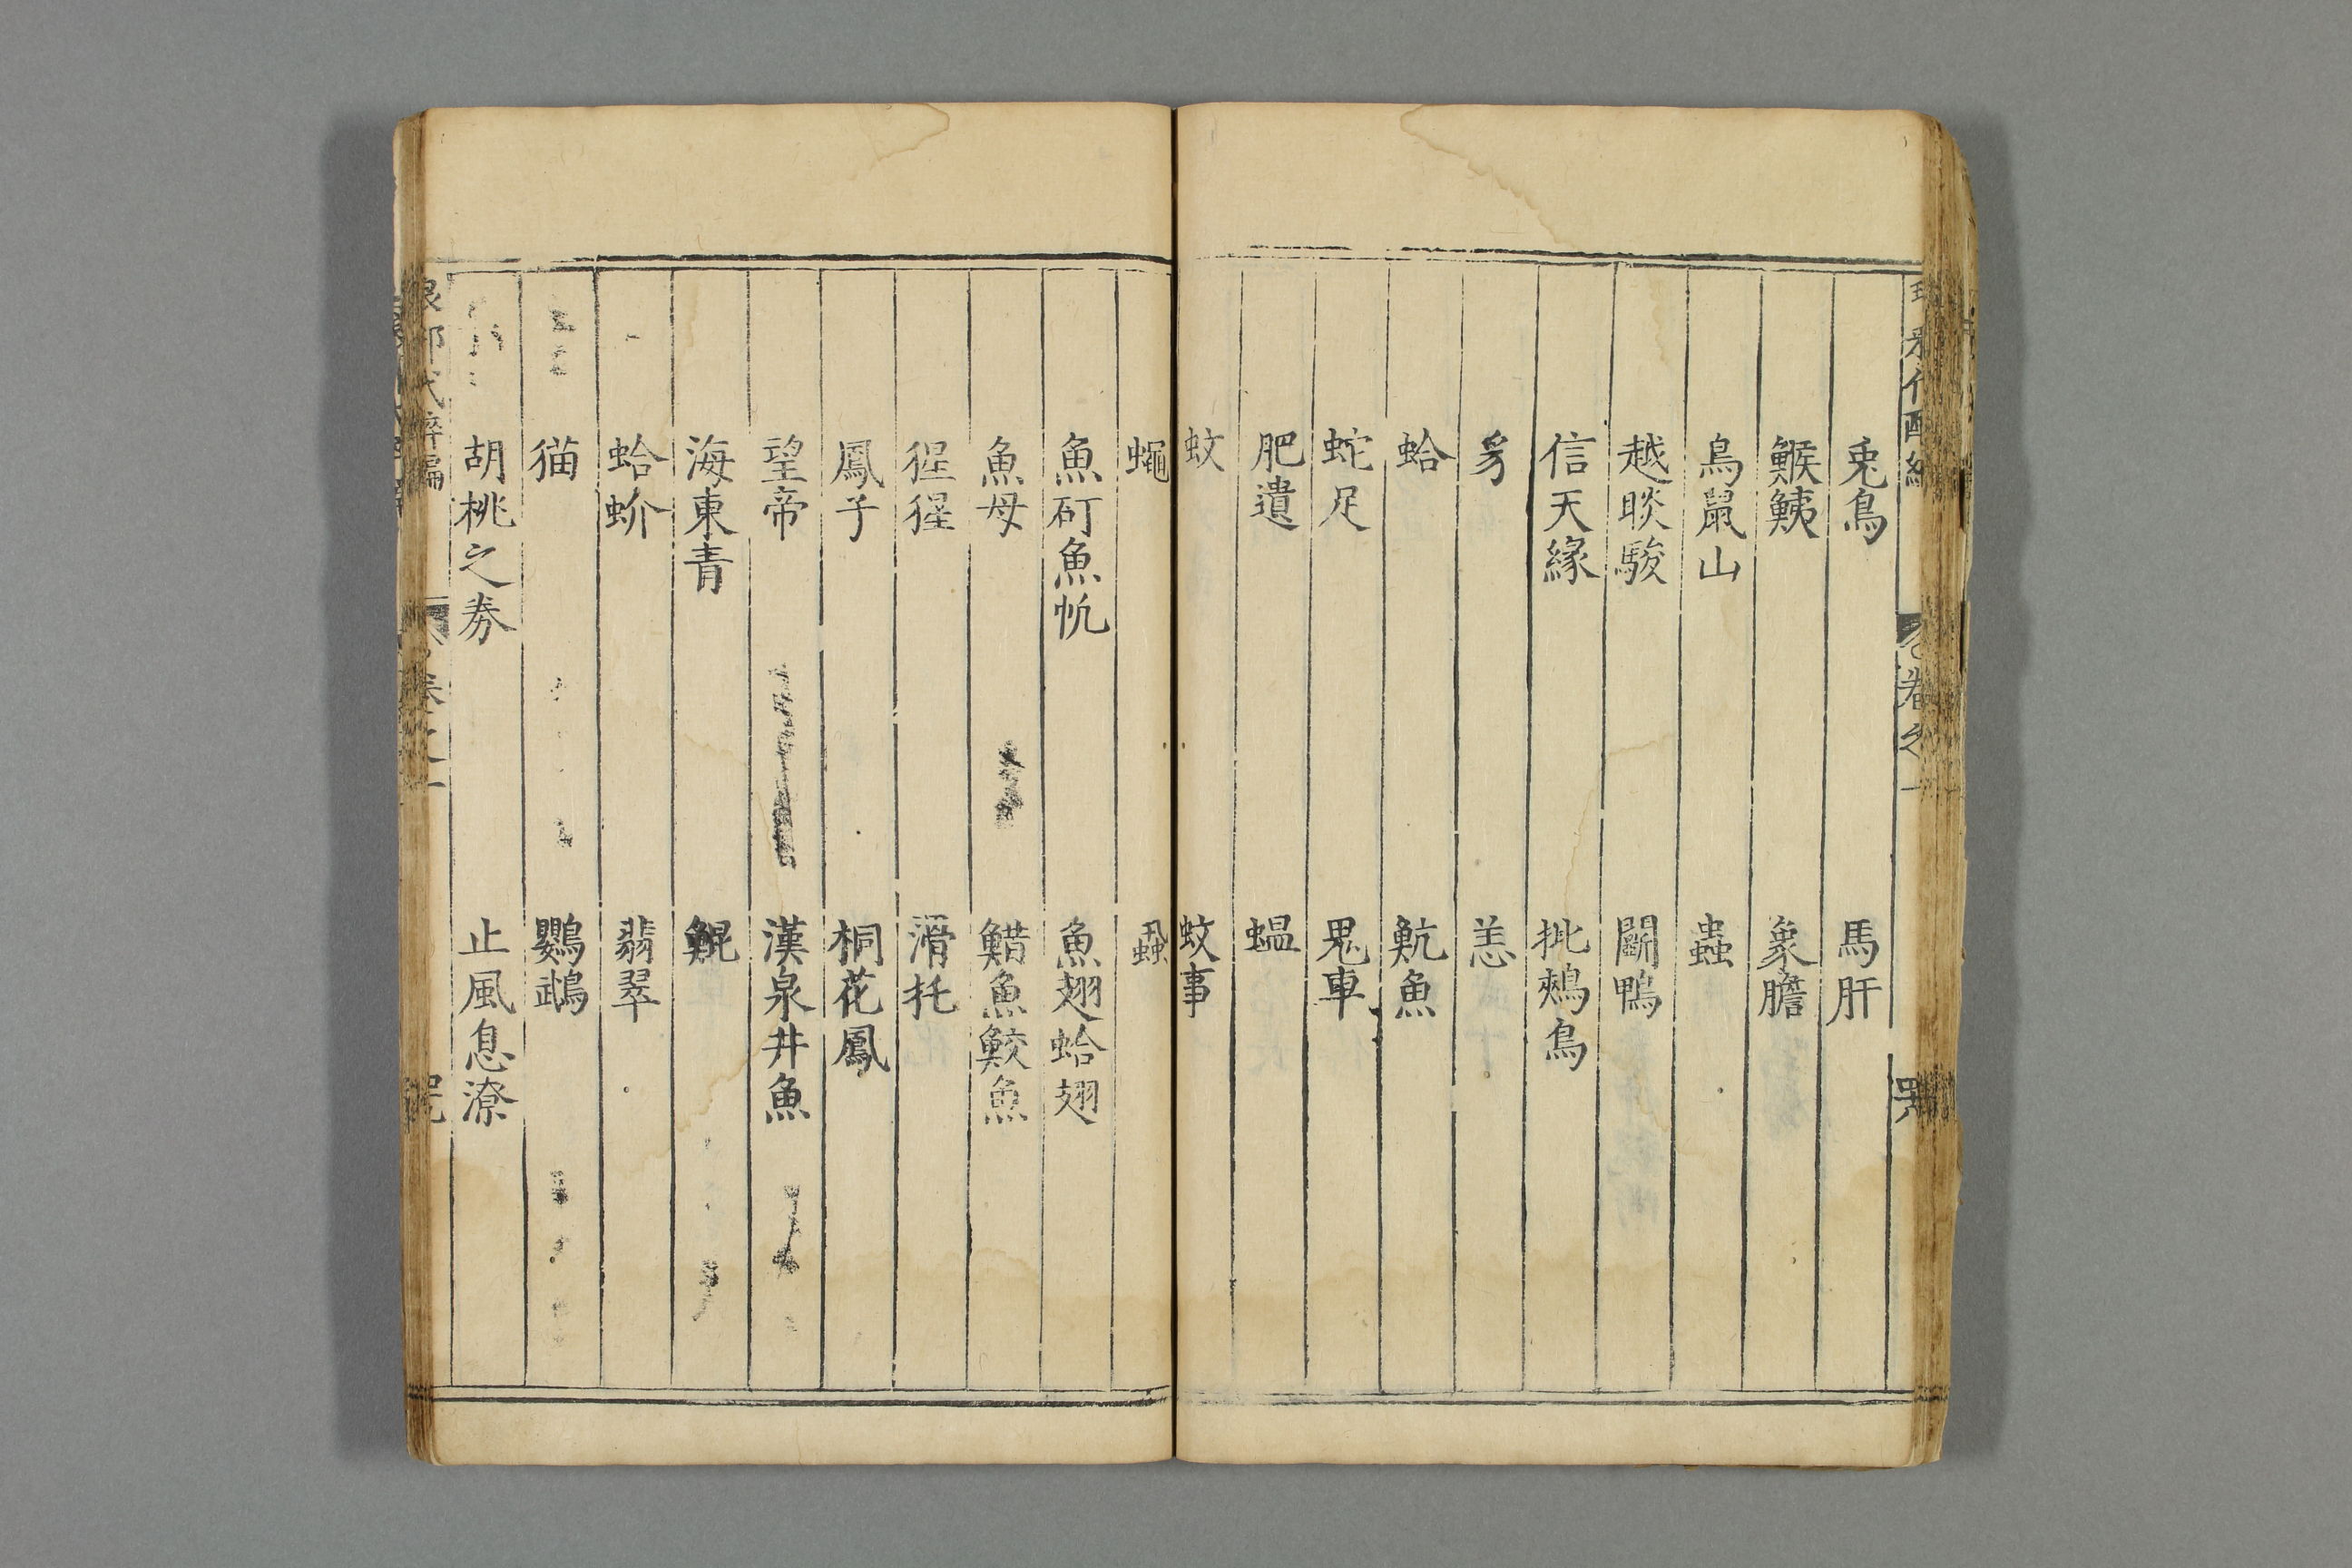 兎鳥　馬肝
鯸鮧　象膽
鳥鼠山　蟲
越睒駿　鬭鴨
信天緣　批鵊鳥
豸　恙
蛤　魧魚
蛇足　鬼車
肥遺　蝹
蚊　蚊事
蠅　蝨
魚矴魚㡆　魚翅蛤翅
魚母　鰌魚鮫魚
猩猩　滑托
鳳子　桐花鳳
望帝　漢泉井魚
海東青　鯤
蛤蚧　翡翠
猫　鸚鵡
胡桃之券　止風息潦
琅邪代醉編　卷之一